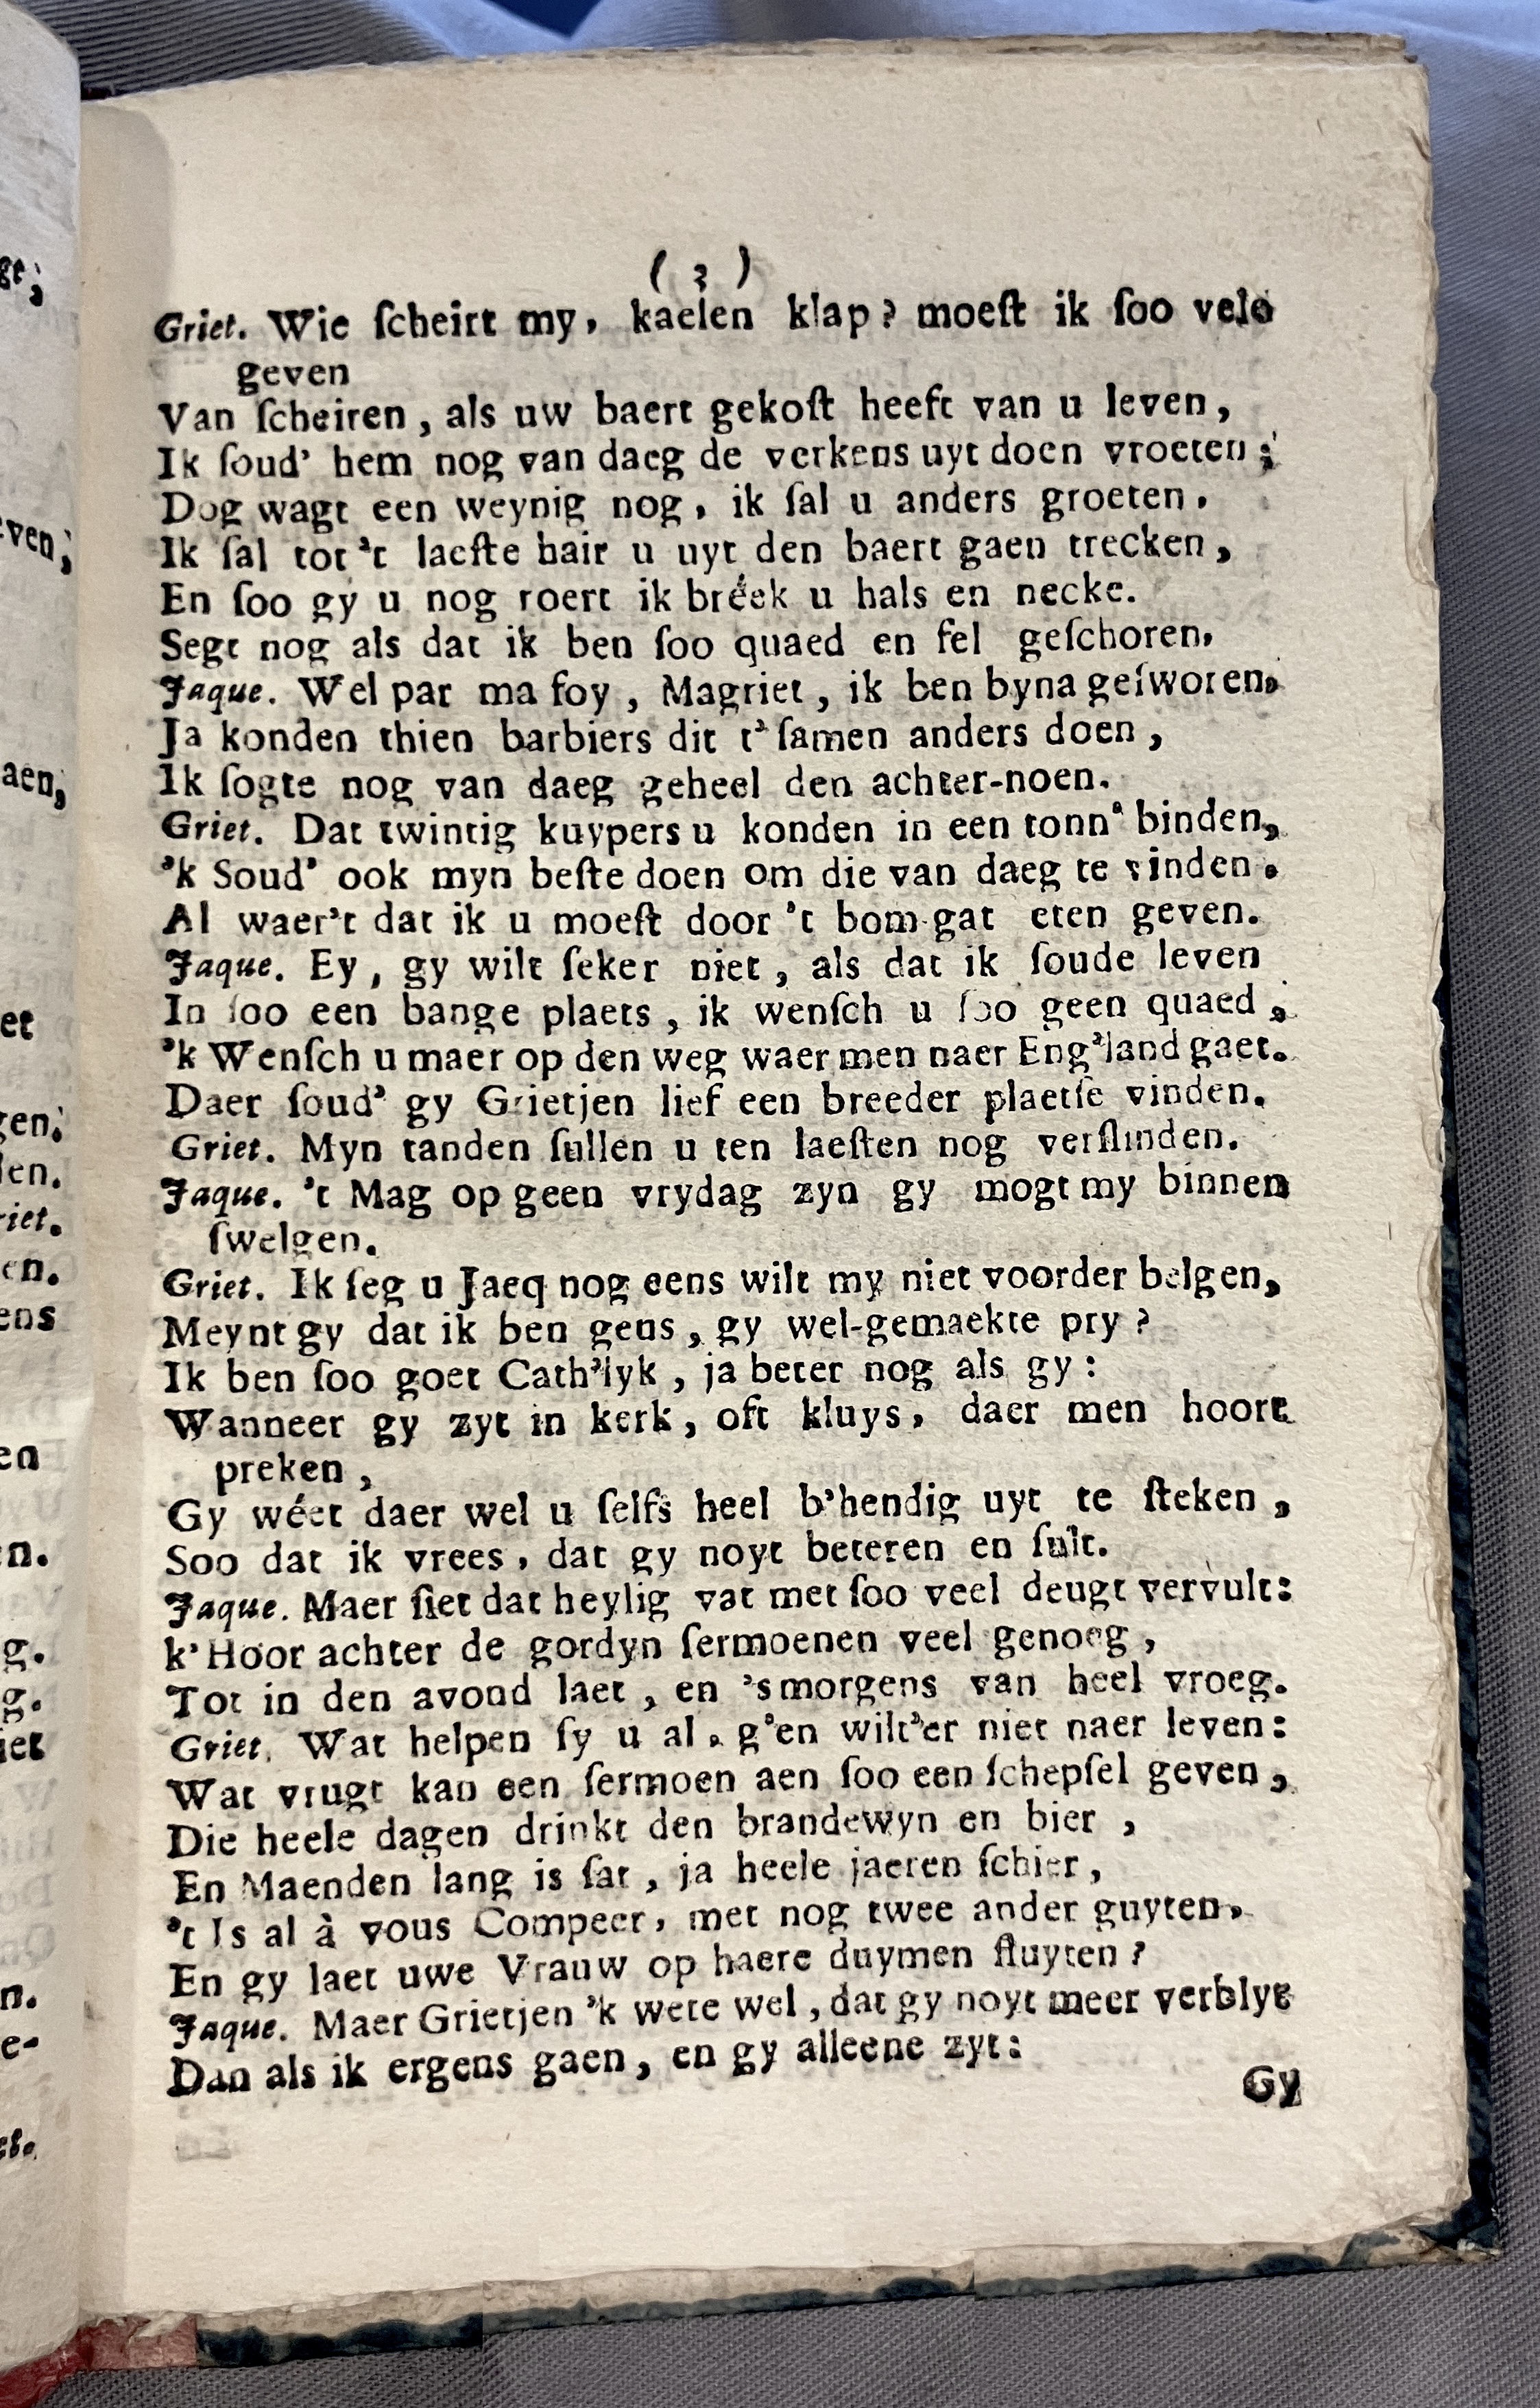 ( 3 )
Griet. Wie ſcheirt my, kaelen klap? moeſt ik ſoo vele
geven
Van ſcheiren, als uw baert gekoſt heeft van u leven,
Ik ſoud' hem nog van daeg de verkens uyt doen vroeten;
Dog wagt een weynig nog, ik ſal u anders groeten.
Ik ſal tot 't laeſte hair u uyt den baert gaen trecken,
En ſoo gy u nog roert ik bréek u hals en necke.
Segt nog als dat ik ben ſoo quaed en fel geſchoren,
Jaque. Wel par ma foy, Magriet, ik ben byna geſworen,
Ja konden thien barbiers dit t'ſamen anders doen,
Ik ſogte nog van daeg geheel den achter-noen.
Griet. Dat twintig kuypers u konden in een tonn' binden,
'k Soud' ook myn beſte doen om die van daeg te vinden.
Al waer't dat ik u moeſt door 't bom-gat eten geven.
Jaque. Ey, gy wilt ſeker niet, als dat ik ſoude leven
In ſoo een bange plaets, ik wenſch u ſoo geen quaed,
'k Wenſch u maer op den weg waer men naer Eng'land gaet.
Daer ſoud' gy Grietjen lief een breeder plaetſe vinden.
Griet. Myn tanden ſullen u ten laeſten nog verſlinden.
Jaque. 't Mag op geen vrydag zyn gy mogt my binnen
ſwelgen.
Griet. Ik ſeg u Jaeq nog eens wilt my niet voorder belgen,
Meynt gy dat ik ben gens, gy wel-gemaekte pry?
Ik ben ſoo goet Cath'lyk, ja beter nog als gy:
Wanneer gy zyt in kerk, oft kluys, daer men hoort
preken,
Gy wéet daer wel u ſelfs heel b'hendig uyt te ſteken,
Soo dat ik vrees, dat gy noyt beteren en ſult.
Jaque. Maer ſiet dat heylig vat met ſoo veel deugt vervult:
k' Hoor achter de gordyn ſermoenen veel genoeg,
Tot in den avond laet, en 's morgens van heel vroeg.
Griet. Wat helpen ſy u al, g'en wilt'er niet naer leven:
Wat vrugt kan een ſermoen aen ſoo een ſchepſel geven,
Die heele dagen drinkt den brandewyn en bier,
En Maenden lang is ſat, ja heele jaeren ſchier,
't Is al à vous Compeer, met nog twee ander guyten,
En gy laet uwe Vrauw op haere duymen fluyten?
Jaque. Maer Grietjen 'k wete wel, dat gy noyt meer verblyt
Dan als ik ergens gaen, en gy alleene zyt:
Gy